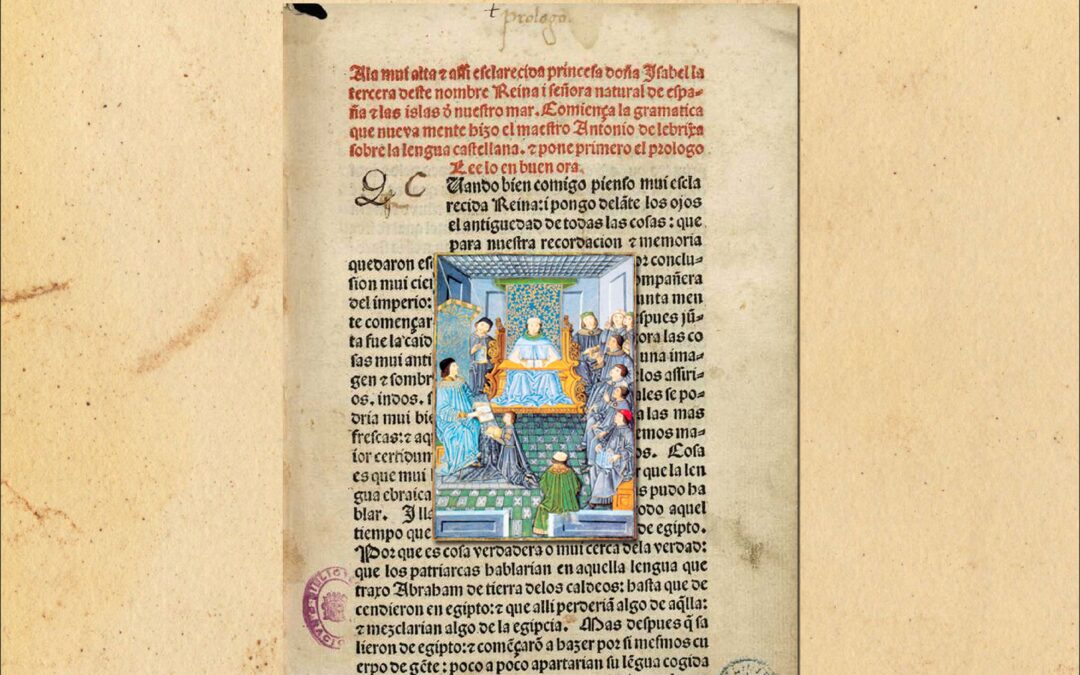 prologo.
Ala mui alta ⁊ assi esclarecida princesa doña Isabel la
tercera deste nombre Reina i señora natural de espa=
ña ⁊ las islas đ nuestro mar. Comiença la gramatica
que nueva mente hizo el maestro Antonio de lebrixa
sobre la lengua castellana. ⁊ pone primero el prologo
Lee lo en buen ora.
C Uando bien comigo pienso mui escla
recida Reina: i pongo delãte los ojos
el antiguedad de todas las cosas: que
para nuestra recordacion ⁊ memoria
quedaron conclu=
sion mui ompañera
del imperio: unta men
te començar spues jũ=
ta fue la caid ora las co
sas mui anti una ima=
gen ⁊ sombr los assiri=
os. indos. s ales se po=
dria mui bie a las mas
frescas: ⁊ aq emos ma=
ior certidum os. Cosa
es que mui que la len
gua ebraica s pudo ha
blar. I lla odo aquel
tiempo que de egipto.
Por que es cosa verdadera o mui cerca dela verdad:
que los patriarcas hablarian en aquella lengua que
traxo Abraham de tierra delos caldeos: hasta que de
cendieron en egipto: ⁊ que alli perderiã algo de aq̃lla:
⁊ mezclarian algo de la egipcia. Mas despues q̃ sa
lieron de egipto: ⁊ començarõ a hazer por si mesmos cu
erpo de gẽte: poco a poco apartarian su lẽgua cogida